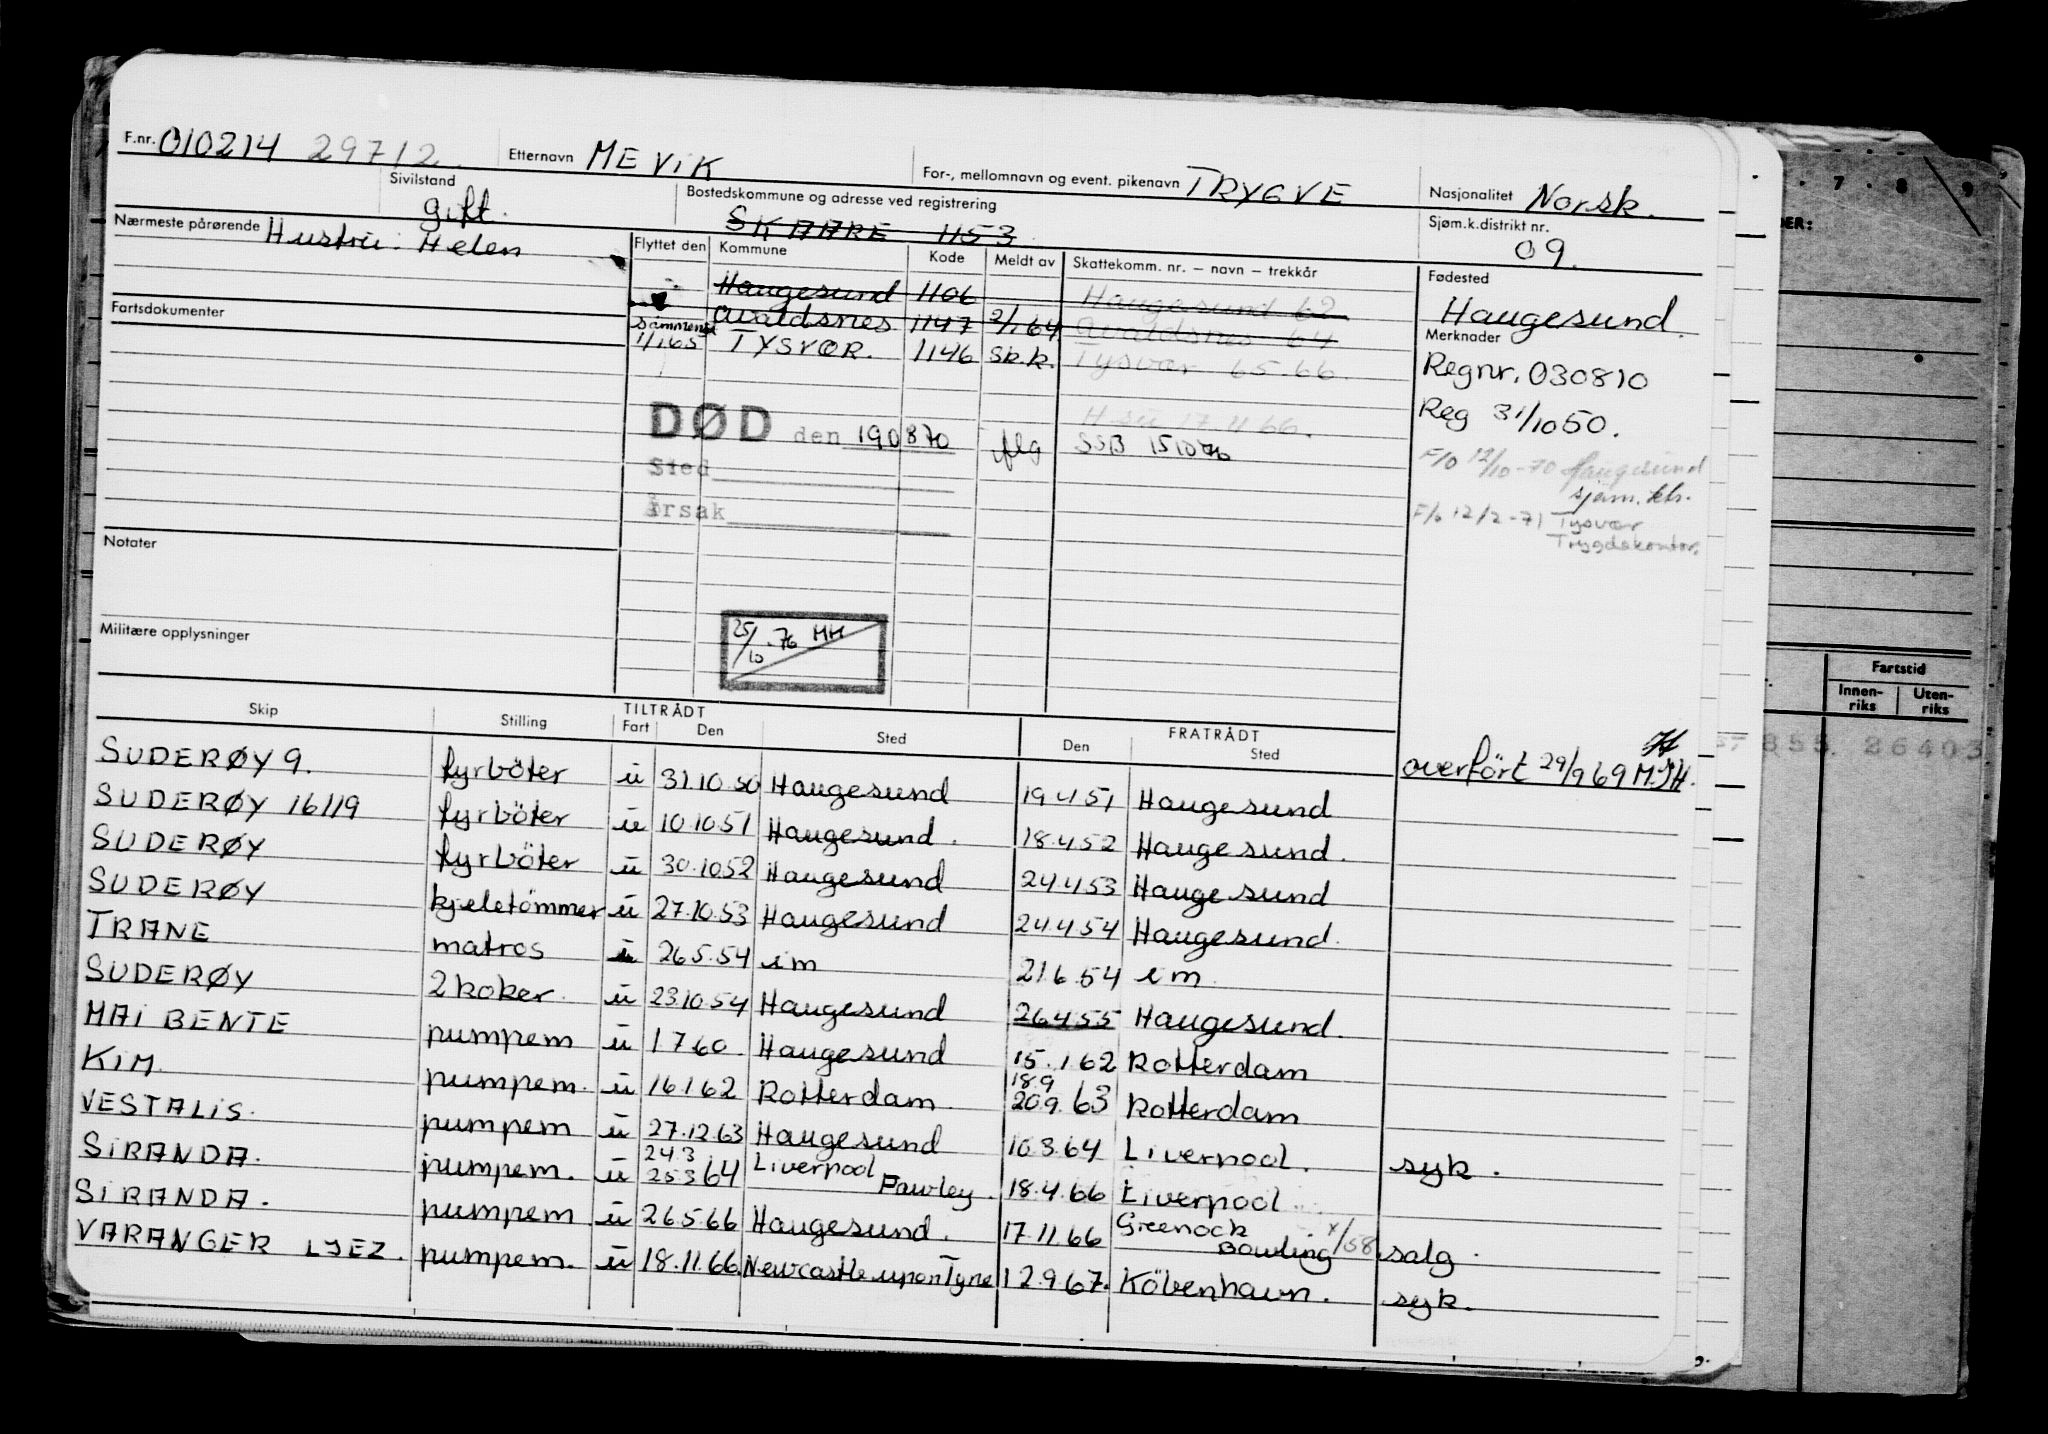 F.nr. 010214 29712. Etternavn MEVIK For-, mellomnavn og event. pikenavn TRYGVE Nasjonalitet Norsk.
Sivilstand gift. Bostedskommune og adresse ved registrering SKAARE 1153 Sjøm.k.distrikt nr. 09.
Nærmeste pårørende Hustru: Helen
Flyttet den Kommune Kode Meldt av Skattekomm. nr. — navn — trekkår Fødested
Haugesund 1106 Haugesund 62 Haugesund.
Avaldsnes 1147 2/1 64 Avaldsnes 64
sammensl 1/1 65 TYSVÆR. 1146 Sk.k. Tysvær 65-66.
Fartsdokumenter
Merknader
Regnr. 030810
Reg 31/10 50.
DØD den 190870 flg SSB 151076
H su 17.11 66.
Sted
Årsak
F/o 12/10-70 Haugesund
sjøm. ktr.
F/o 12/2-71 Tysvær
Trygdekontor.
Notater
25/10.76 HH
Militære opplysninger
TILTRÅDT FRATRÅDT
Skip Stilling Fart Den Sted Den Sted
overført 29/9 69 M.J.H.
SUDERØY 9. fyrböter u 31.10.50 Haugesund 19.4.51 Haugesund
SUDERØY 16119 fyrböter u 10.10.51 Haugesund. 18.4.52 Haugesund.
SUDERØY fyrböter u 30.10.52 Haugesund 24.4.53 Haugesund
SUDERØY kjeletömmer u 27.10.53 Haugesund 24.4.54 Haugesund.
TRANE matros i 26.5.54 im 21.6.54 im.
SUDERØY 2 koker. u 23.10.54 Haugesund 26.4.55 Haugesund.
MAI BENTE pumpem u 1.7.60. Haugesund 15.1.62 Rotterdam
KIM. pumpem. u 16.1.62 Rotterdam. 18.9 20.9.63 Rotterdam
VESTALIS. pumpem u 27.12.63 Haugesund 10.3.64 Liverpool. syk.
SIRANDA. pumpem. u 24.3 25.3 64 Liverpool Fawley. 18.4.66 Liverpool
SIRANDA. pumpem u 26.5.66 Haugesund. 17.11.66 Greenock Bowling x/58 salg.
VARANGER LJEZ. pumpem. u 18.11.66 Newcastle upon Tyne 12.9.67. Köbenhavn. syk.
7 8 9
Fartstid
Innen-
riks
Uten-
riks
855. 26403